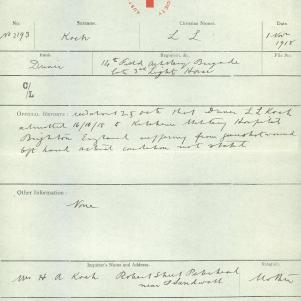 No. Surname. Christian Names.
No 2193 Koch L L 1 Nov 1918
Rank Regiment, &c. File No.
Driver 14th Field Artillery Brigade
late 3rd Light Horse
C/L
OFFICIAL REPORTS : and about 25 oct that Driver L L Koch
admitted 16/10/18 to Kitchener Military Hospital
Brighton England suffering from gunshot wound
left hand condition not stated
Other Information :
None
Inquirer's Name and Address. Relation.
Mrs H A Koch Robert Street Mother
near